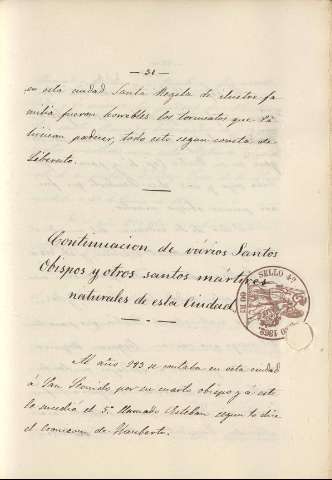 — 31 —
en esta ciudad Santa Regela de ilustre fa
milia fueron horrables los tormentos que
hicieron padecer, todo esto segun consta de
Liberato.
Continuacion de vários Santos
Obispos y otros santos mártires
naturales de esta Ciudad
SELLO 4º
Al años 293 se contaba en esta ciudad
á San Leonido por su cuarto obispo y á este
le sucedió el 5º llamado Esteban segun lo dice
el comicon de Hauberto.